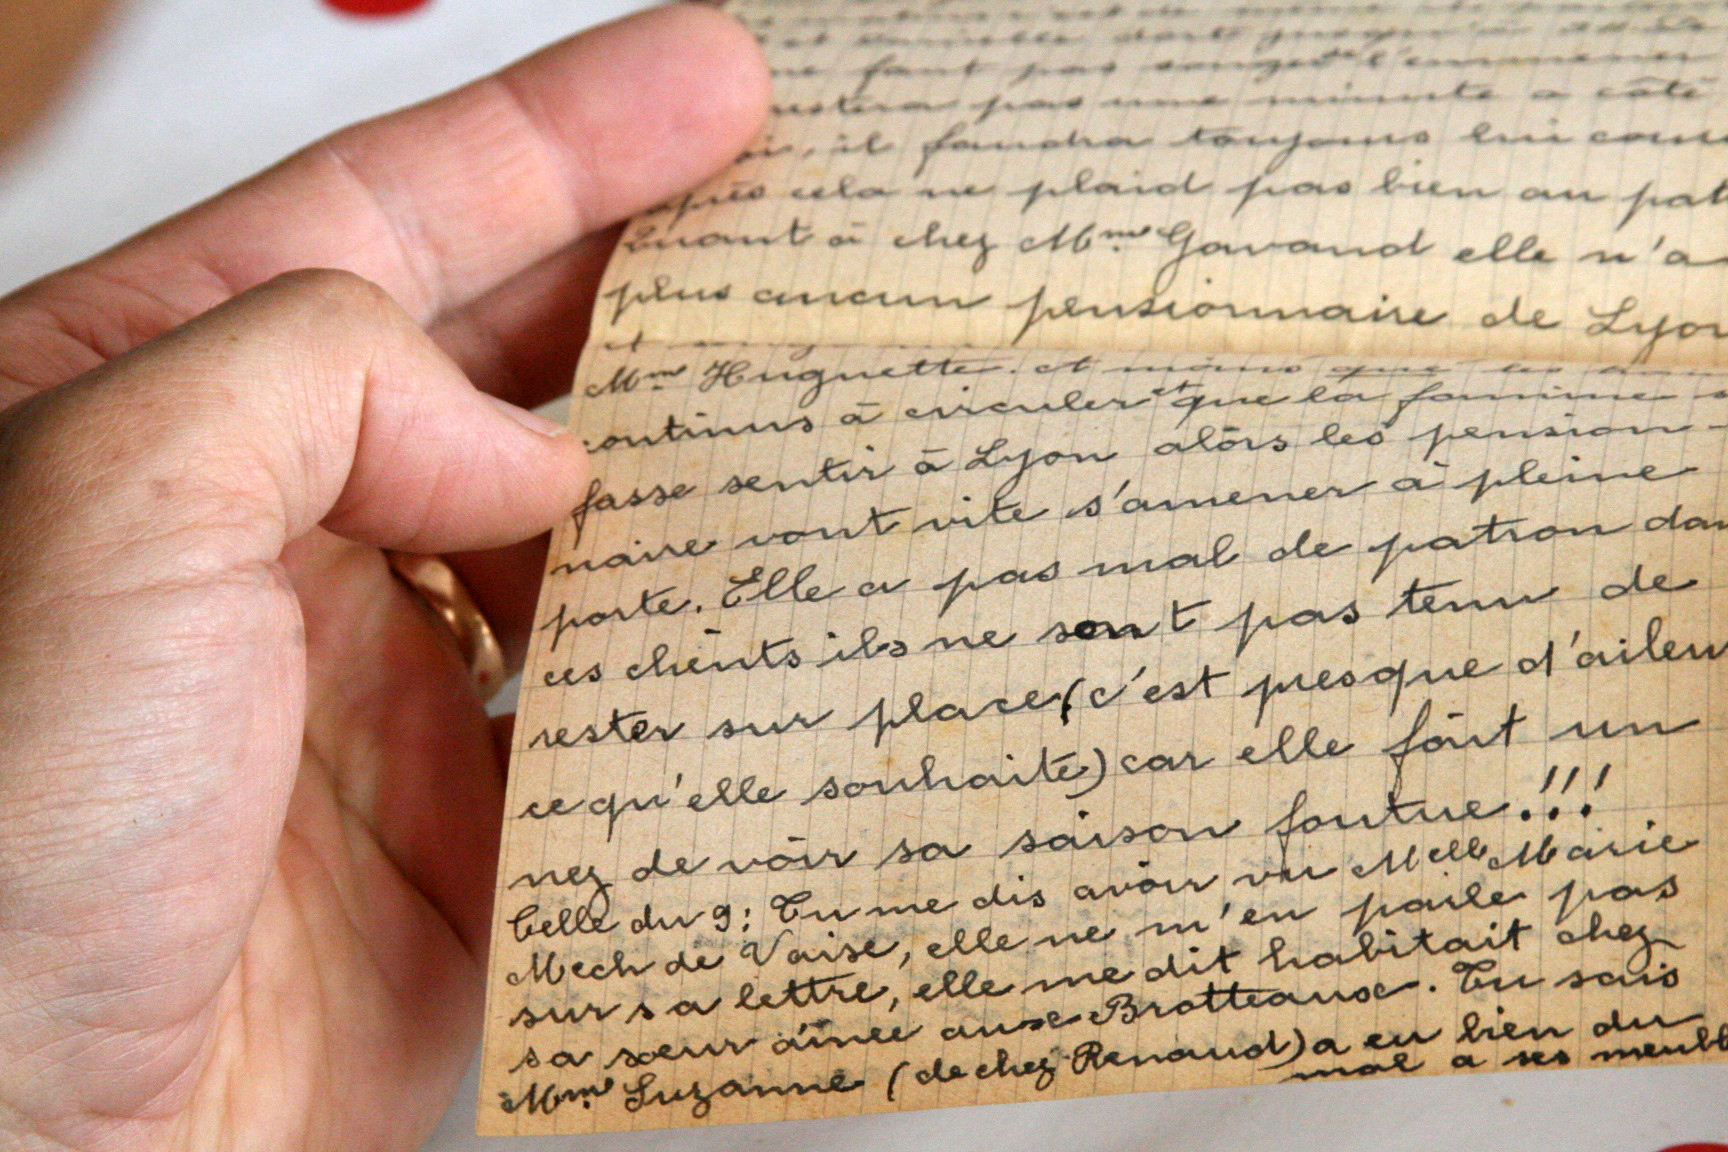 ne faut pas songer de l'emmener
restera pas une minute a côté
il faudra toujours lui
après cela ne plaid pas bien au pat
Quant à chez Mme Gavand elle n'a
plus aucun pensionnaire de Lyon
et
Mme Huguette. et moins que les
continus à circuler et que la famine s
fasse sentir à Lyon alors les pension-
naire vont vite s'amener à pleine
porte. Elle a pas mal de patron dan
ces chients ils ne sont pas tenu de
rester sur place (c'est presque d'aileu
ce qu'elle souhaite) car elle fait un
nez de voir sa saison foutue!!!
Celle du 9: Tu me dis avoir vu Melle Marie
Mech de Vaise, elle ne m'en parle pas
sur sa lettre, elle me dit habitait chez
sa sœur ainée aux Brotteaux. Tu sais
Mme Suzanne (de chez Renaud) a eu bien du
mal a ses meubl